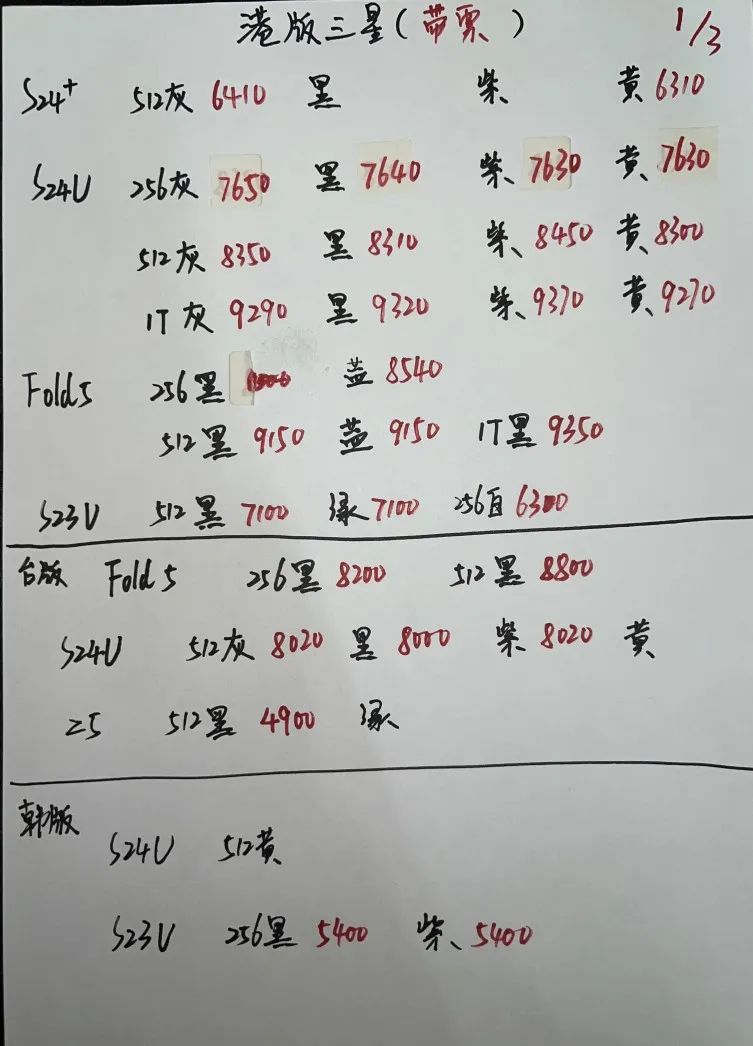 港版三星(带票) 1/3
S24+ 512灰 6410 黑 紫 黄 6310
S24U 256灰 7650 黑 7640 紫 7630 黄 7630
512灰 8350 黑 8310 紫 8450 黄 8300
1T灰 9290 黑 9320 紫 9370 黄 9270
Fold5 256黑 蓝 8540
512黑 9150 蓝 9150 1T黑 9350
S23U 512黑 7100 绿 7100 256白 6300
台版 Fold5 256黑 8200 512黑 8800
S24U 512灰 8020 黑 8000 紫 8020 黄
Z5 512黑 4900 绿
韩版
S24U 512黄
S23U 256黑 5400 紫 5400